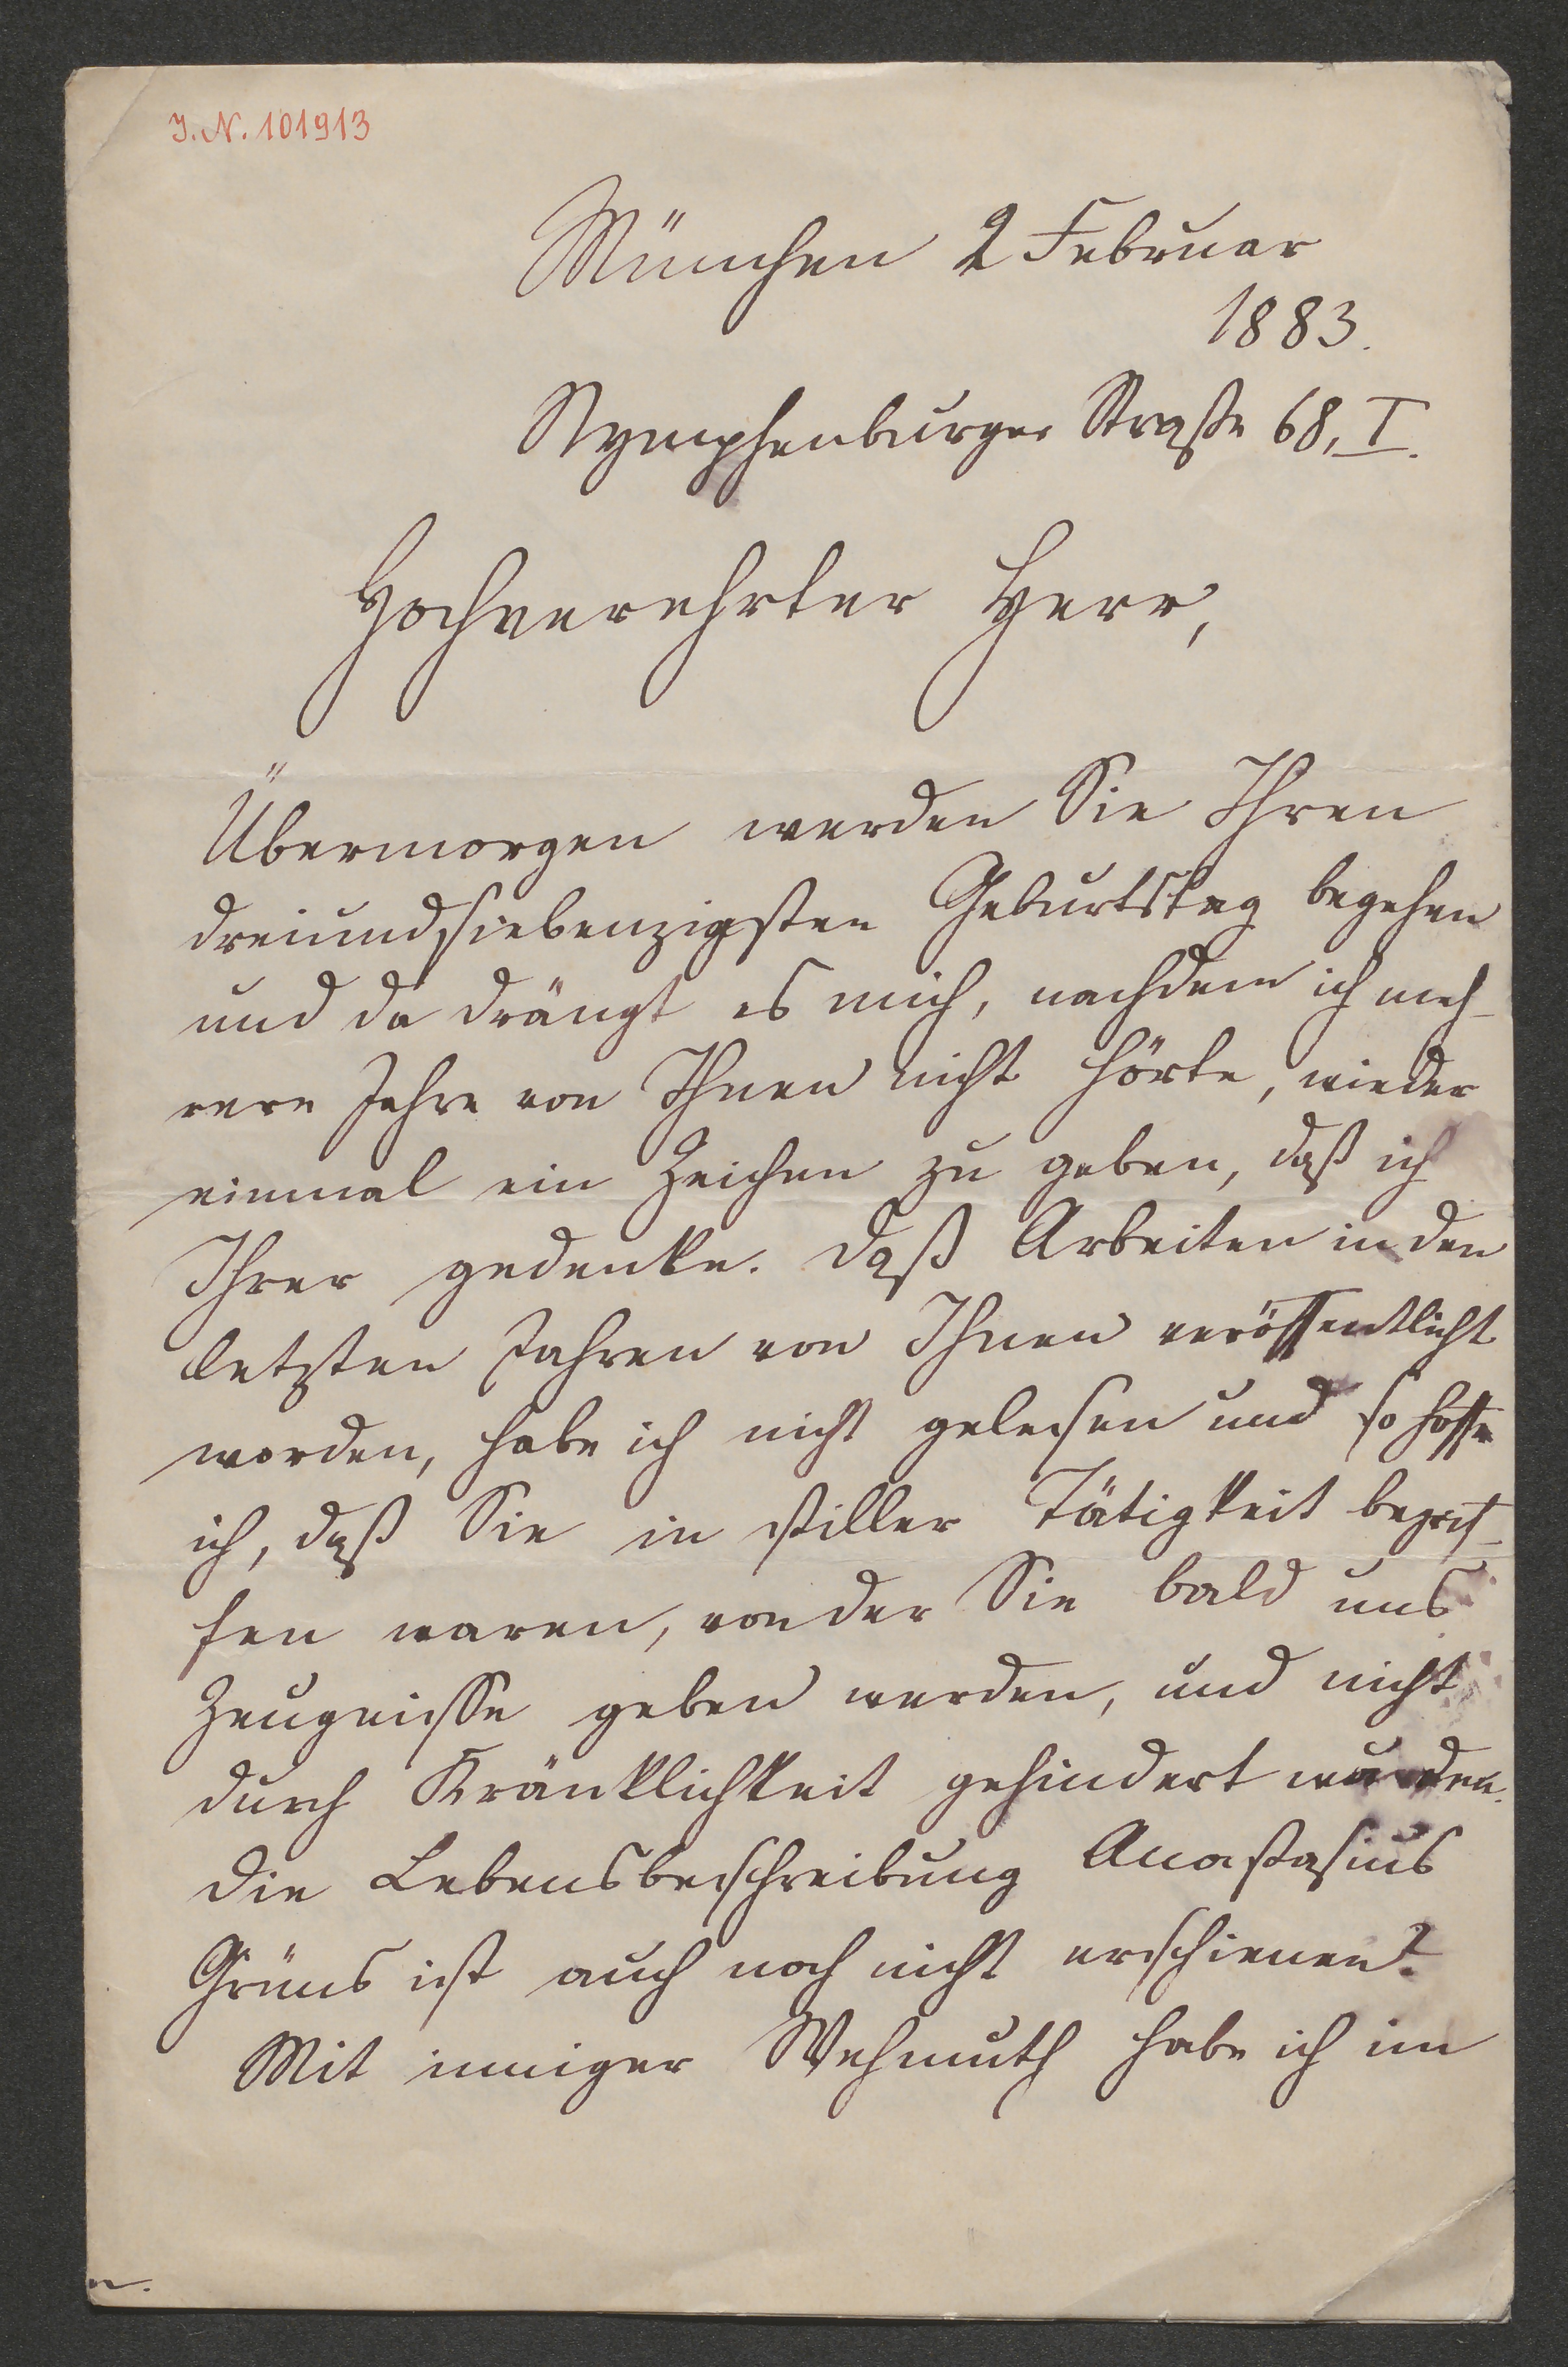 J.N. 101913
München 2 Februar
1883.
Nymphenburger Straße 68, I.
Hochverehrter Herr,
Übermorgen werden Sie Ihren
dreiundsiebenzigsten Geburtstag begehen
und da drängt es mich, nachdem ich meh-
rere Jahre von Ihnen nicht hörte, wieder
einmal ein Zeichen zu geben, daß ich
Ihrer gedenke. Daß Arbeiten in den
letzten Jahren von Ihnen veröffentlicht
worden, habe ich nicht gelesen und so hoffe
ich, daß Sie in stiller Tätigkeit begrif-
fen waren, von der Sie bald uns
Zeugnisse geben werden, und nicht
durch Kränklichkeit gehindert wurden.
Die Lebensbeschreibung Anastasius
Grüns ist auch noch nicht erschienen?
Mit inniger Wehmuth habe ich im
n.